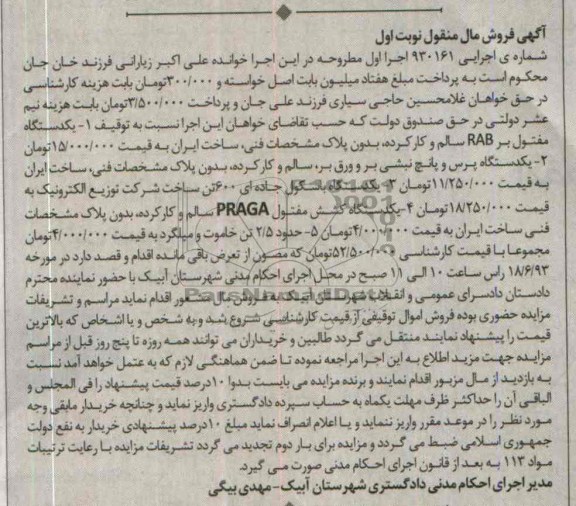 آگهی فروش مال منقول نوبت اول
شماره ی اجرایی ۹۳۰۱۶۱ اجرا اول مطروحه در این اجرا خوانده علی اکبر زیارانی فرزند خان جان
محکوم است به پرداخت مبلغ هفتاد میلیون بابت اصل خواسته و ۳۰۰/۰۰۰تومان بابت هزینه کارشناسی
در حق خواهان غلامحسین حاجی سیاری فرزند علی جان و پرداخت ۳/۵۰۰/۰۰۰تومان بابت هزینه نیم
عشر دولتی در حق صندوق دولت که حسب تقاضای خواهان این اجرا نسبت به توقیف ۱- یکدستگاه
مفتول بر RAB سالم و کارکرده، بدون پلاک مشخصات فنی، ساخت ایران به قیمت ۱۵/۰۰۰/۰۰۰تومان
۲- یکدستگاه پرس و پانچ نبشی بر و ورق بر، سالم و کارکرده، بدون پلاک مشخصات فنی، ساخت ایران
به قیمت ۱۱/۲۵۰/۰۰۰تومان ۳- یکدستگاه باسکول جاده ای ۶۰۰تن ساخت شرکت توزیع الکترونیک به
قیمت ۱۸/۲۵۰/۰۰۰تومان ۴-یکدستگاه کشش مفتول PRAGA سالم و کارکرده، بدون پلاک مشخصات
فنی ساخت ایران به قیمت ۴/۰۰۰/۰۰۰تومان ۵- حدود ۲/۵ تن خاموت و میلگرد به قیمت ۴/۰۰۰/۰۰۰تومان
مجموعا با قیمت کارشناسی ۵۲/۵۰۰/۰۰۰تومان که مصون از تعرض باقی مانده اقدام و قصد دارد در مورخه
۱۸/۶/۹۳ راس ساعت ۱۰ الی ۱۱ صبح در محل اجرای احکام مدنی شهرستان آبیک با حضور نماینده محترم
دادستان دادسرای عمومی و انقلاب شهرستان آبیک به فروش مال مزبور اقدام نماید مراسم و تشریفات
مزایده حضوری بوده فروش اموال توقیفی از قیمت کارشناسی شروع شد و به شخص و یا اشخاص که بالاترین
قیمت را پیشنهاد نمایند منتقل می گردد طالبین و خریداران می توانند همه روزه تا پنج روز قبل از مراسم
مزایده جهت مزید اطلاع به این اجرا مراجعه نموده تا ضمن هماهنگی لازم که به عتمل خواهد آمد نسبت
به بازدید از مال مزبور اقدام نمایند و برنده مزایده می بایست بدوا ۱۰درصد قیمت پیشنهاد را فی المجلس و
الباقی آن را حداکثر ظرف مهلت یکماه به حساب سپرده دادگستری واریز نماید و چنانچه خریدار مابقی وجه
مورد نظر را در موعد مقرر واریز ننماید و یا اعلام انصراف نماید مبلغ ۱۰درصد پیشنهادی خریدار به نفع دولت
جمهوری اسلامی ضبط می گردد و مزایده برای بار دوم تجدید می گردد تشریفات مزایده با رعایت ترتیبات
مواد ۱۱۳ به بعد از قانون اجرای احکام مدنی صورت می گیرد.
مدیر اجرای احکام مدنی دادگستری شهرستان آبیک - مهدی بیگی